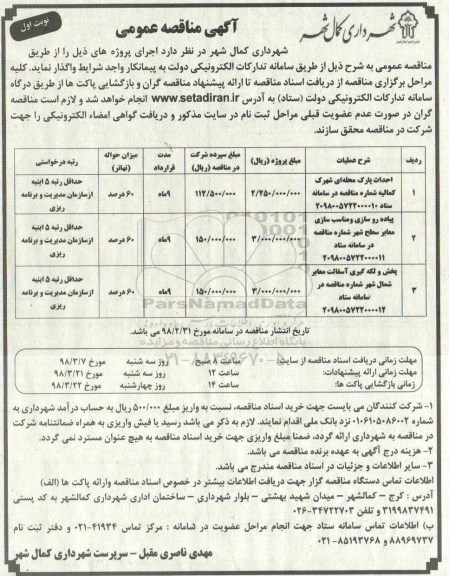 شهرداری کمال شهر
آگهی مناقصه عمومی
نوبت اول
شهرداری کمال شهر در نظر دارد اجرای پروژه های ذیل را از طریق
مناقصه عمومی به شرح ذیل از طریق سامانه تدارکات الکترونیکی دولت به پیمانکار واجد شرایط واگذار نماید. کلیه
مراحل برگزاری مناقصه از دریافت اسناد مناقصه تا ارائه پیشنهاد مناقصه گران و بازگشایی پاکت ها از طریق درگاه
سامانه تدارکات الکترونیکی دولت (ستاد) به آدرس www.setadiran.ir انجام خواهد شد و لازم است مناقصه
گران در صورت عدم عضویت قبلی مراحل ثبت نام در سایت مذکور و دریافت گواهی امضاء الکترونیکی را جهت
شرکت در مناقصه محقق سازند.
ردیف شرح عملیات مبلغ پروژه (ریال) مبلغ سپرده شرکت در مناقصه (ریال) مدت قرارداد میزان حواله (تهاتر) رتبه درخواستی
۱ احداث پارک محله‌ای شهرک کمالیه شماره مناقصه در سامانه ستاد ۲۰۹۸۰۰۵۷۲۲۰۰۰۰۱۰ ۲/۲۵۰/۰۰۰/۰۰۰ ۱۱۲/۵۰۰/۰۰۰ ۹ماه ۶۰ درصد حداقل رتبه ۵ ابنیه از سازمان مدیریت و برنامه ریزی
۲ پیاده رو سازی ومناسب سازی معابر سطح شهر شماره مناقصه در سامانه ستاد ۲۰۹۸۰۰۵۷۲۲۰۰۰۰۱۱ ۳/۰۰۰/۰۰۰/۰۰۰ ۱۵۰/۰۰۰/۰۰۰ ۹ماه ۶۰ درصد حداقل رتبه ۵ ابنیه از سازمان مدیریت و برنامه ریزی
۳ پخش و لکه گیری آسفالت معابر شمال شهر شماره مناقصه در سامانه ستاد ۲۰۹۸۰۰۵۷۲۲۰۰۰۰۱۲ ۳/۰۰۰/۰۰۰/۰۰۰ ۱۵۰/۰۰۰/۰۰۰ ۹ماه ۶۰ درصد حداقل رتبه ۵ ابنیه از سازمان مدیریت و برنامه ریزی
ParsNamadData
پایگاه اطلاع رسانی مناقصه و مزایده
۰۲۱-۸۸۳۴۹۶۷۰-۵
تاریخ انتشار مناقصه در سامانه مورخ ۹۸/۲/۳۱ می باشد.
مهلت زمانی دریافت اسناد مناقصه از سایت: ساعت ۸ صبح روز سه شنبه مورخ ۹۸/۳/۷
مهلت زمانی ارائه پیشنهادات: ساعت ۱۲ روز سه شنبه مورخ ۹۸/۳/۲۱
زمانی بازگشایی پاکت ها: ساعت ۱۴ روز چهارشنبه مورخ ۹۸/۳/۲۲
۱- شرکت کنندگان می بایست جهت خرید اسناد مناقصه، نسبت به واریز مبلغ ۵۰۰/۰۰۰ ریال به حساب درآمد شهرداری به
شماره ۰۱۰۶۱۰۵۰۸۶۰۰۲ نزد بانک ملی اقدام نمایند. لازم به ذکر می باشد رسید یا فیش واریزی به همراه ضمانتنامه شرکت
در مناقصه به شهرداری ارائه گردد، ضمنا مبلغ واریزی جهت خرید اسناد مناقصه به هیچ عنوان مسترد نمی گردد.
۲- هزینه درج آگهی به عهده برنده مناقصه می باشد.
۳- سایر اطلاعات و جزئیات در اسناد مناقصه مندرج می باشد.
اطلاعات تماس دستگاه مناقصه گزار جهت دریافت اطلاعات بیشتر در خصوص اسناد مناقصه وارائه پاکت ها (الف)
آدرس : کرج – کمالشهر – میدان شهید بهشتی – بلوار شهرداری – ساختمان اداری شهرداری کمالشهر به کد پستی
۳۱۹۹۸۳۷۴۹۱ و تلفن ۳۴۷۲۲۷۰۳-۰۲۶
ب) اطلاعات تماس سامانه ستاد جهت انجام مراحل عضویت در سامانه : مرکز تماس ۴۱۹۳۴-۰۲۱ و دفتر ثبت نام
۸۸۹۶۹۷۳۷ و ۸۵۱۹۳۷۶۸-۰۲۱
مهدی ناصری مقبل – سرپرست شهرداری کمال شهر